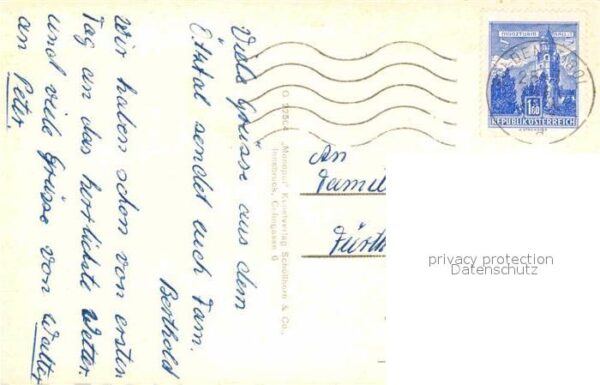 Viele Grüsse aus dem
Ötztal sendet euch Fam.
Berthold
Wir haben schon von ersten
Tag an das herrlichste Wetter.
und viele Grüsse von Walter
an Peter.
"Monopol" Kunstverlag Schöllhorn & Co.,
Innsbruck, Colingasse 6
An
Famil
Fürth
MÜNZTURM HALL I. T.
1.80
REPUBLIK ÖSTERREICH
privacy protection
Datenschutz